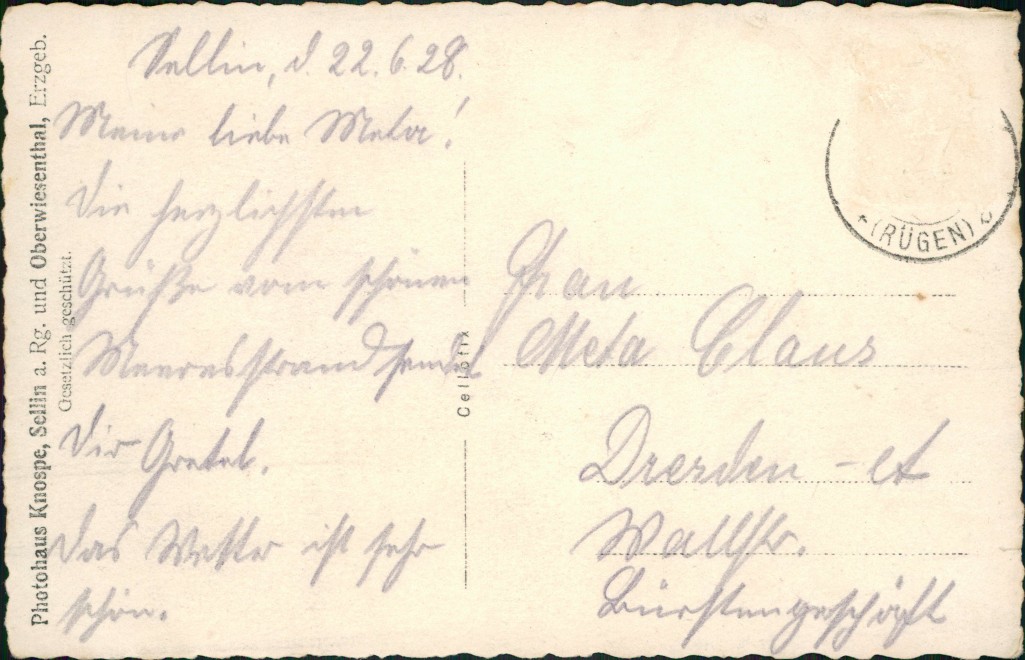 Photohaus Knospe, Sellin a. Rg. und Oberwiesenthal, Erzgeb.
Gesetzlich geschützt.
Sellin, d. 22.6.28.
Meine liebe Meta!
Die herzlichsten
Grüße vom schönen
Meeresstrand sendet
Dir Gretel.
Das Wetter ist sehr
schön.
Cellofix
(RÜGEN) b
Frau
Meta Claus
Dresden - A
Wallstr.
Bürstengeschäft